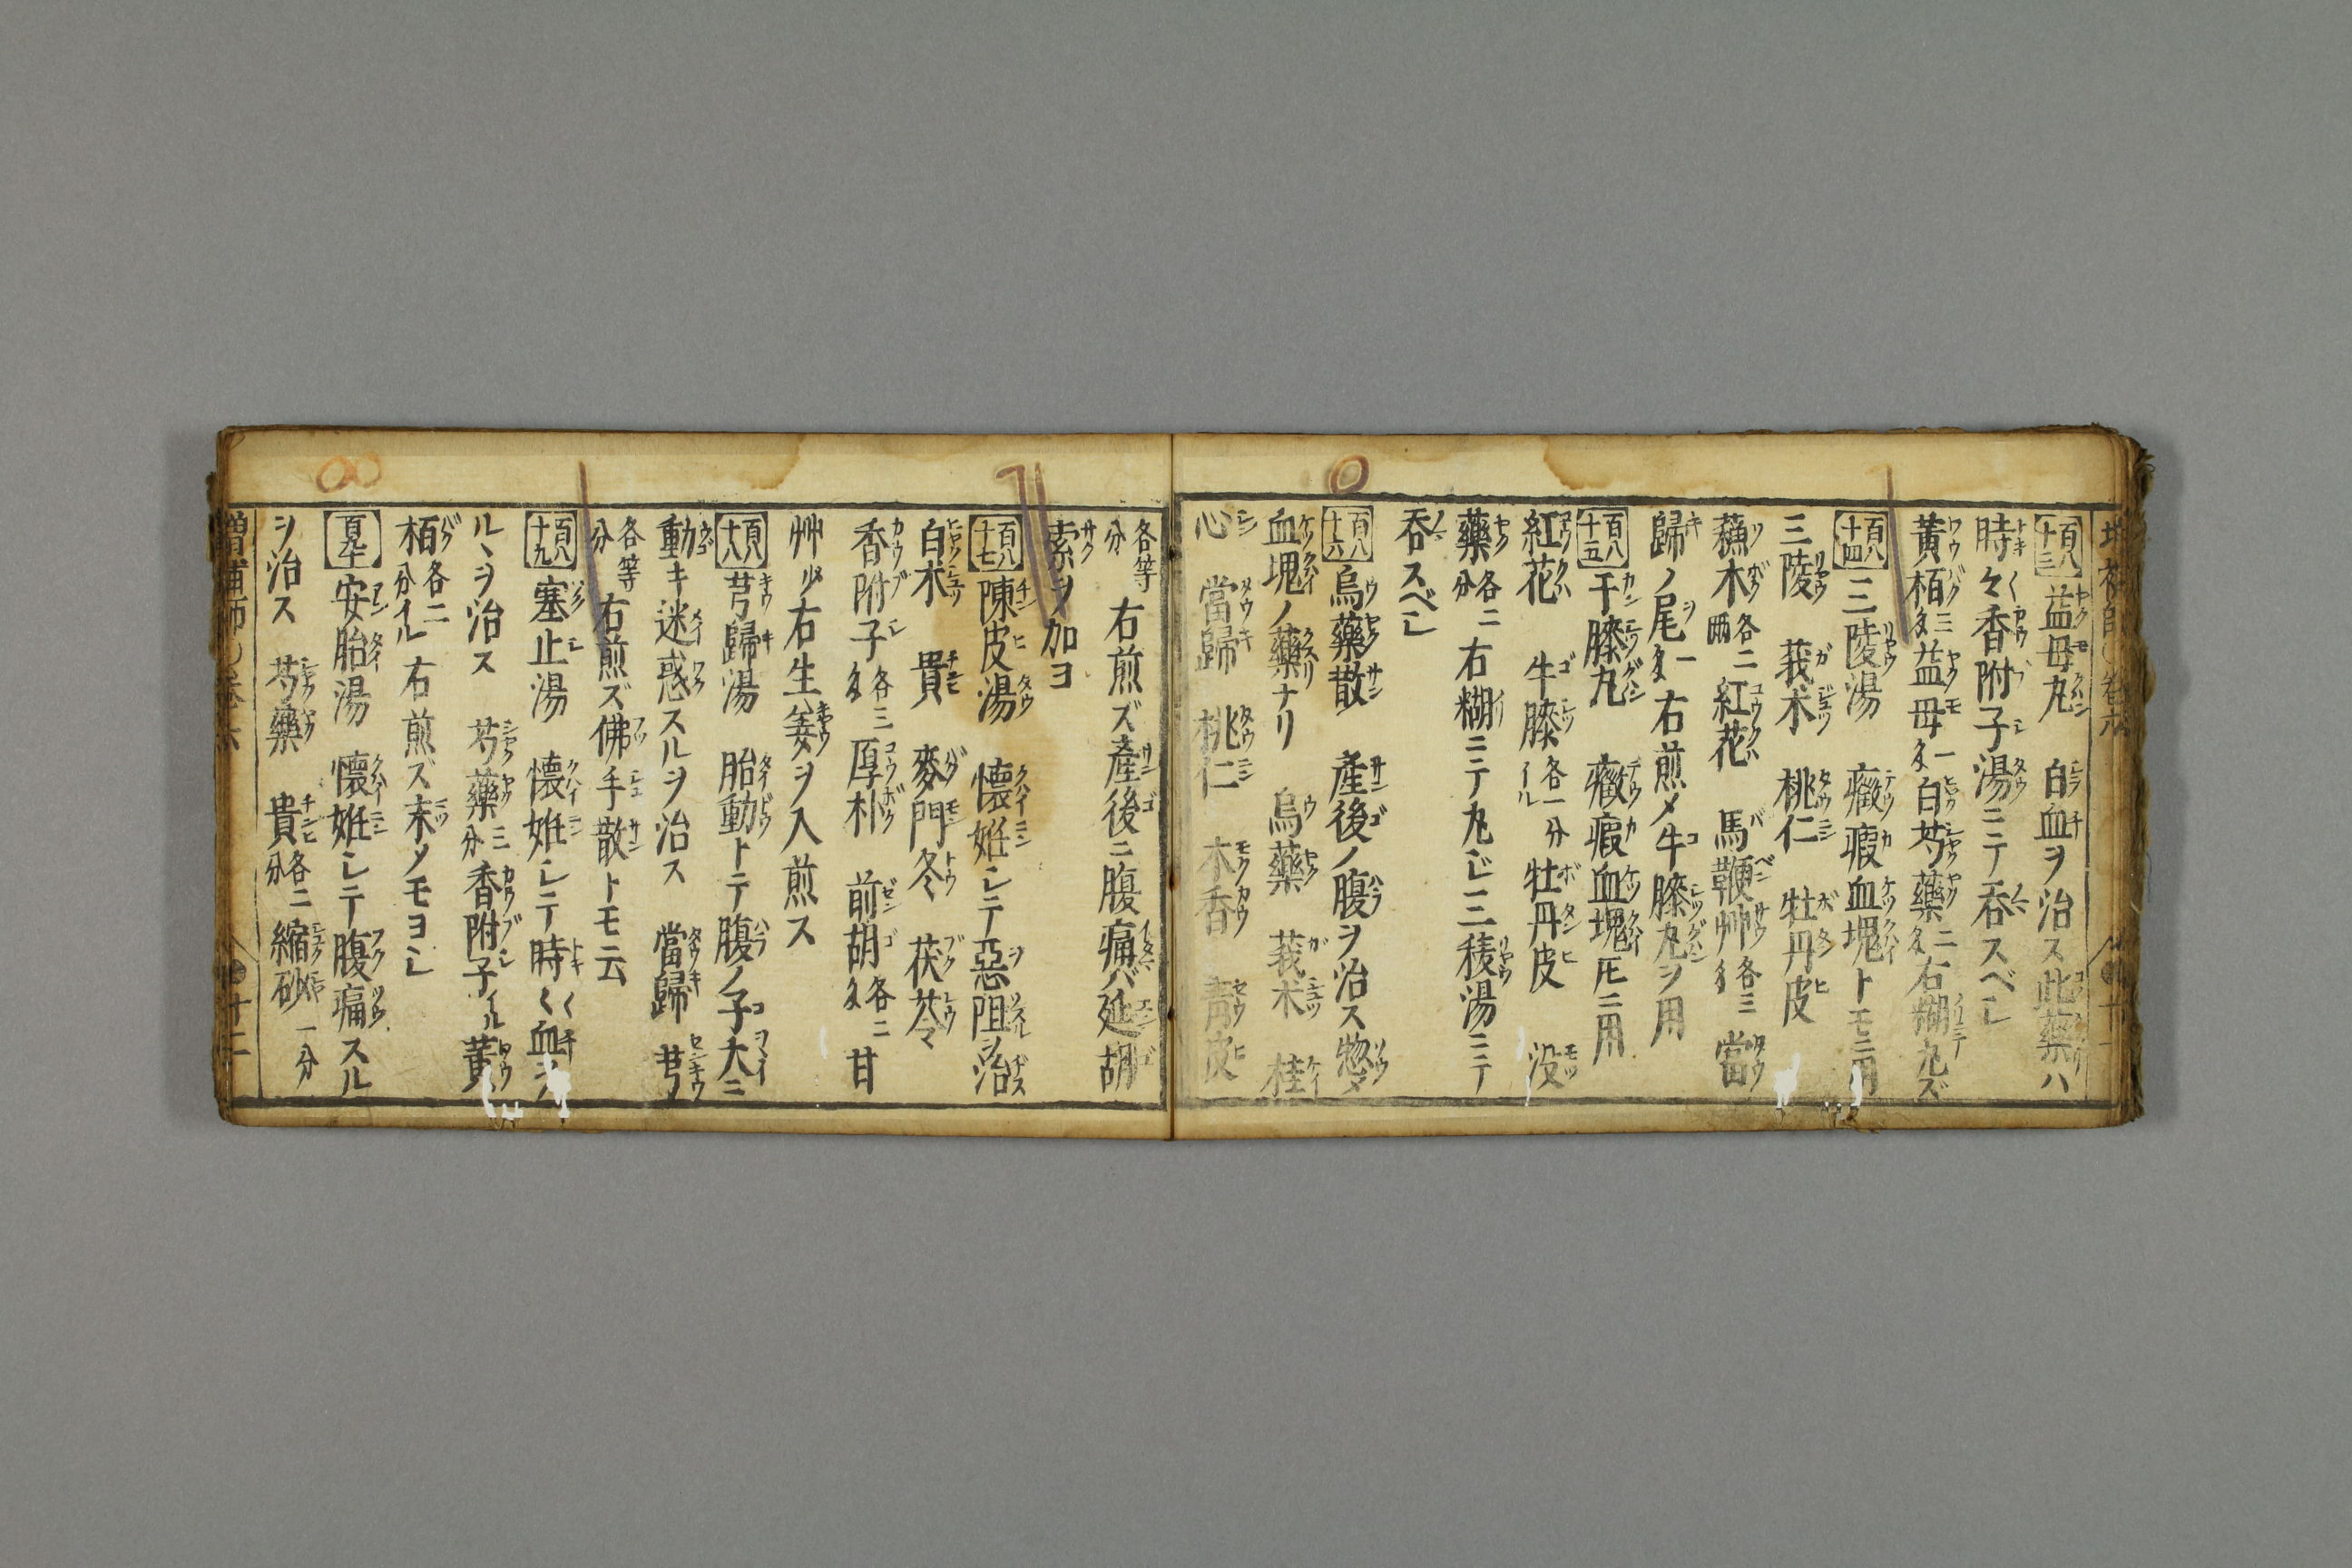 百八十三 益母丸 白血ヲ治ス此藥ハ
時々香附子湯ニテ呑スベし
黄栢三匁益母一匁白芍藥二匁右糊丸ズ
百八十四 三陵湯 癥瘕血塊トモニ用
三陵 莪朮 桃仁 牡丹皮
蘓木各二兩紅花 馬鞭艸各三匁當
歸ノ尾一匁右煎メ牛膝丸ヲ用
百八十五 干膝丸 癥瘕血塊圧ニ用
紅花 牛膝各一分イル牡丹皮 没
藥各二分右糊ニテ丸じ三稜湯ニテ
呑スベし
百八十六 烏藥散 産後ノ腹ヲ治ス惣メ
血塊ノ藥ナリ 烏藥 莪朮 桂
心 當歸 桃仁 木香 青皮
各等分右煎ズ産後ニ腹痛バ延胡
索ヲ加ヨ
百八十七 陳皮湯 懐姙しテ惡阻ヲ治
白朮 貫 麥門冬 茯苓
香附子各三匁厚朴 前胡各二匁甘
艸少右生姜ヲ入煎ス
百八十八 芎歸湯 胎動トテ腹ノ子大ニ
動キ迷惑スルヲ治ス 當歸 芎
各等分右煎ズ佛手散トモ云
百八十九 塞止湯 懐姙しテ時く血ヲ
ルヽヲ治ス 芍藥三分香附子イル黄
栢各二分イル右煎ズ末メモヨし
百九十 安胎湯 懐姙しテ腹痛スル
ヲ治ス 芍藥 貴各二分縮砂一分
増補師 卷六 廿二